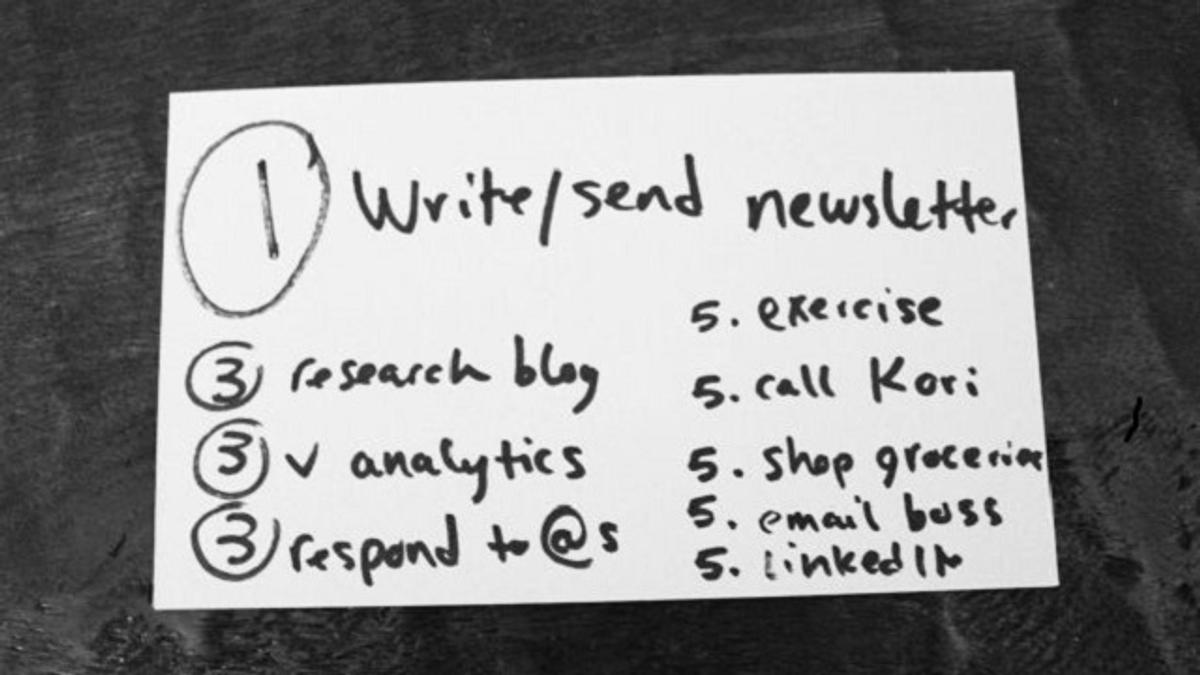 1 Write/send newsletter
3 research blog
3 ✓ analytics
3 respond to @s
5. exercise
5. call Kori
5. shop groceries
5. email boss
5. linkedIn